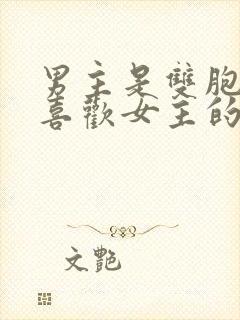 男主是雙胞
喜歡女主的
文艷